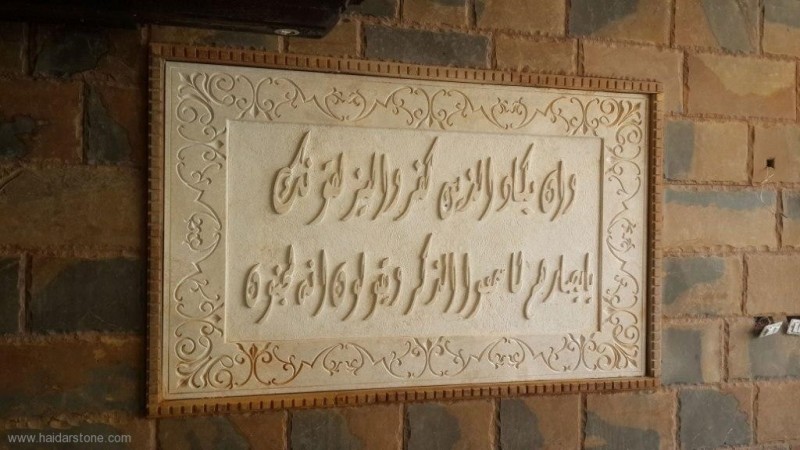 وان يكاد الذين كفروا ليزلقونك
بابصارهم لما سمعوا الذكر ويقولون انه لمجنون
www.haidarstone.com